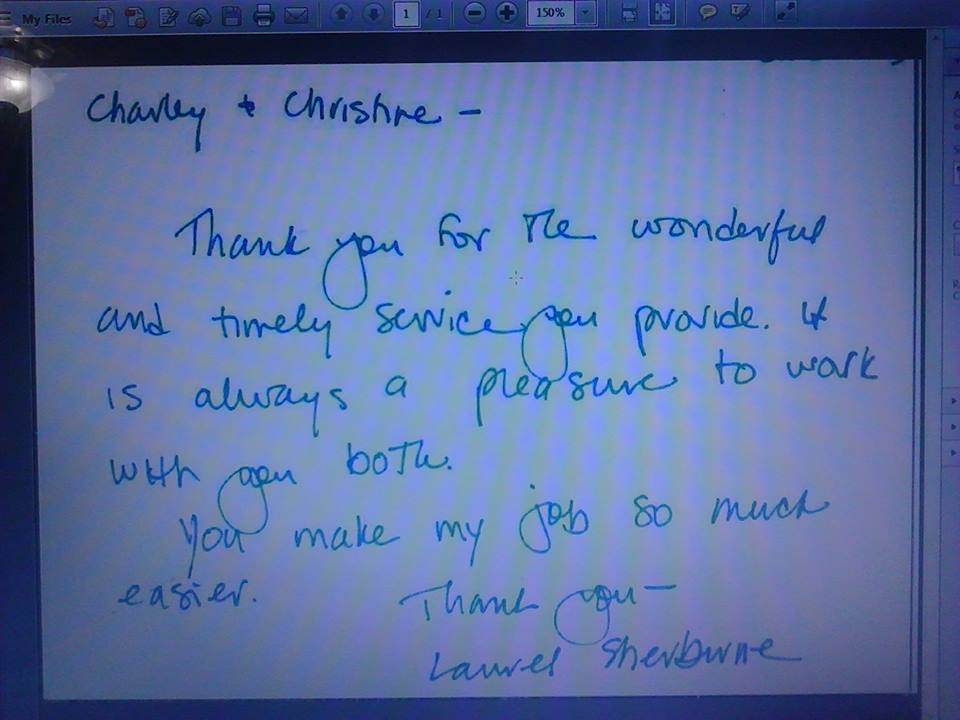 My Files 1 / 1 150%
Charley & Christine -
Thank you for the wonderful
and timely service you provide. it
is always a pleasure to work
with you both.
You make my job so much
easier.
Thank you-
Laurel Sherburne